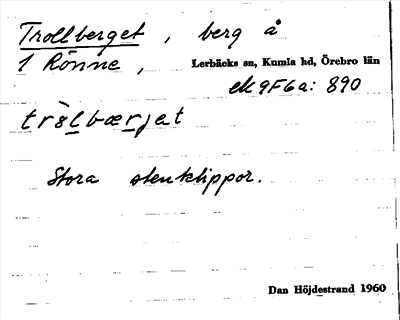 Trollberget, berg å
1 Rönne, Lerbäcks sn, Kumla hd, Örebro län
ek 9F6a: 890
trölbærjet
Stora stenklippor.
Dan Höjdestrand 1960